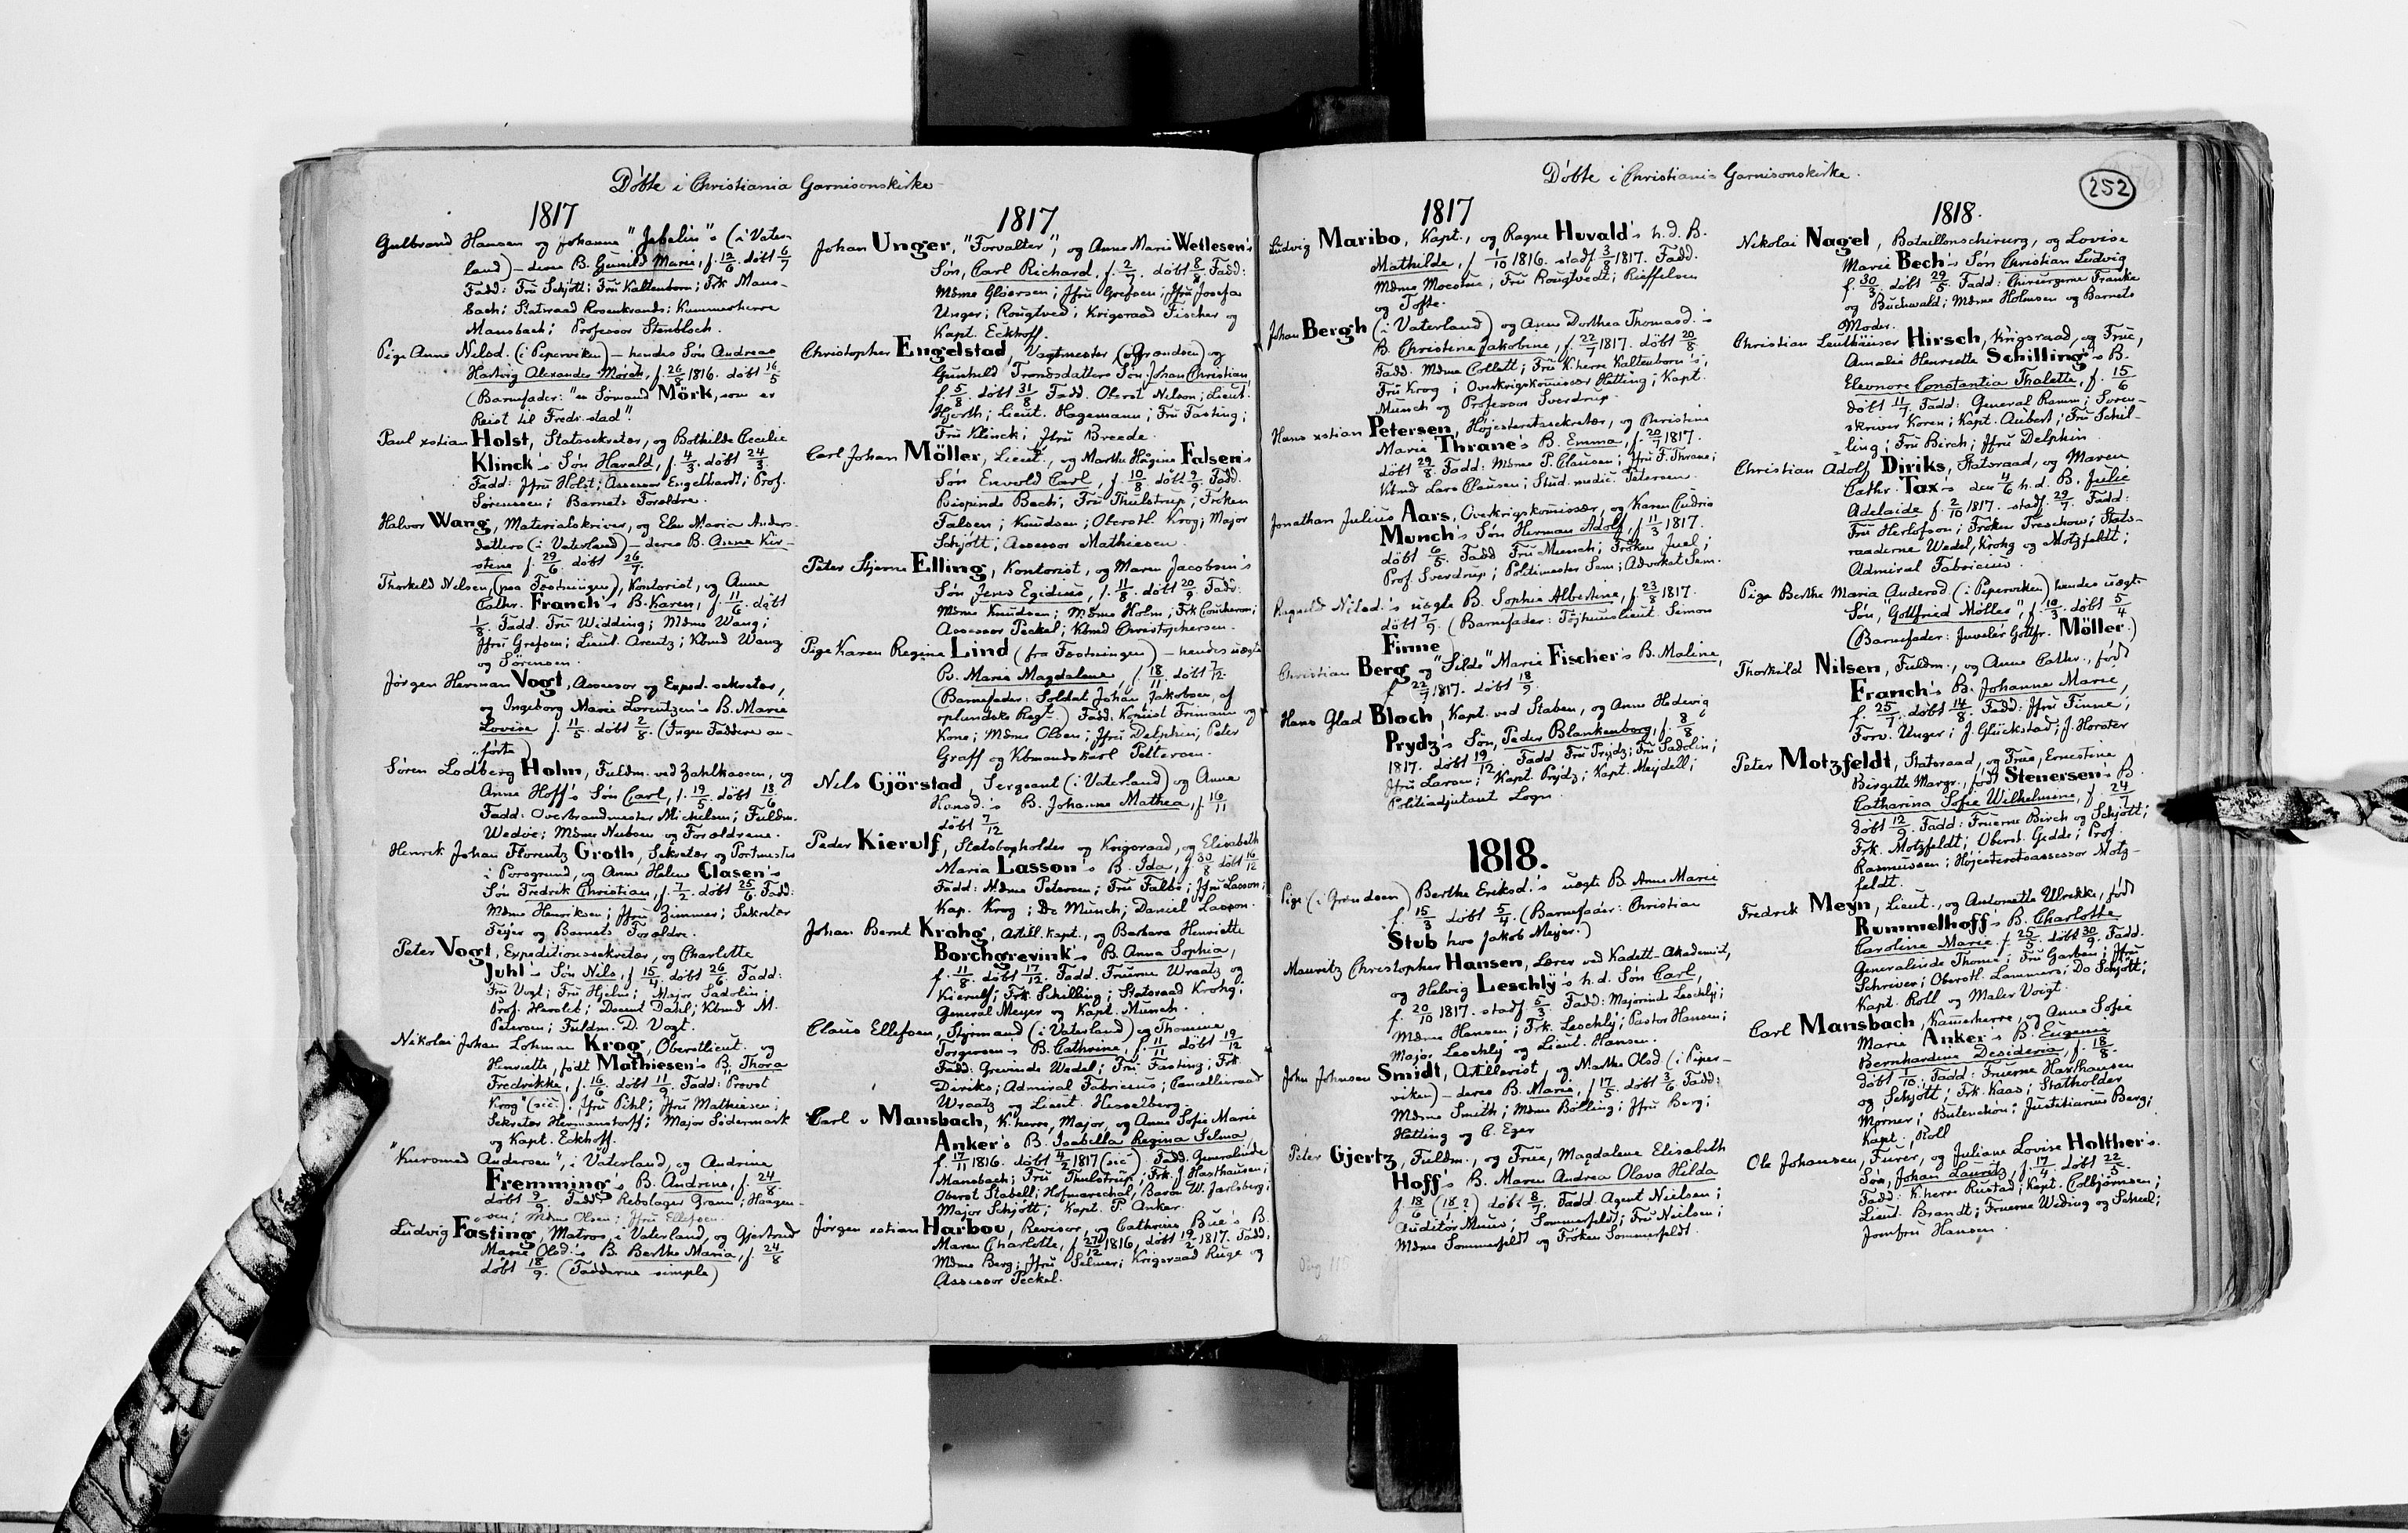 Döbte i Christiania Garnisonskirke
1817
Gulbrand Hansen og Johanne "Jebelin"s (i Vater-
land) – deres B. Gunild Marie, f. 12/6. döbt 6/7
Fadd: Fru Schjött; Fru Kaltenborn; Frk Mans-
bach; Statsraad Rosenkrands; Kammerherre
Mansbach; Professor Stenbloch.
Pige Anne Nilsd. (i Pipervîken) – hendes Sön Andreas
Hartvig Alexander Mörch, f. 26/8 1816. döbt 16/5
(Barnefader: "en Sömand Mörk, som er
Reist til Fredr.stad".
Paul xstian Holst, Statssekretær, og Bothilde Cecilie
Klinck's Sön Harald, f. 4/3. döbt 24/3.
Fadd: Jfru Holst; Assessor Engelhardt; Prof.
Sörenssen; Barnets Forældre.
Halvor Wang, Materialskriver, og Elen Maria Anders-
datters (i Vaterland) – deres B. Anne Kir-
stene f. 29/6. döbt 26/7.
Thorkild Nelsen, (paa Fæstningen), Kontorist, og Anne
Cathr. Franch's B. Karen, f. 11/6. döbt
1/8. Fadd. Fru Widding; Mdme Wang;
Jfru Grefsen; Lieut. Arentz; Kbmd Wang
og Sörensen.
Jörgen Herman Vogt, Assessor og Exped. sekretær,
og Ingeborg Marie Lorentzen's B. Marie
Lovise f. 11/5. döbt 2/8. (Ingen Faddere an-
förte)
Sören Lodberg Holm, Fuldm. ved Zahlkassen, og
Anne Hoff's Sön Carl, f. 19/5. döbt 13/6
Fadd: Overbrandmester Michelsen; Fuldm.
Wedöe; Mdme Nubsen og Forældrene.
Henrik Johan Florentz Groth, Sekretær og Portmester
i Porsgrund, og Anne Helene Clasen's
Sön Fredrik Christian, f. 7/2. döbt 25/6. Fadd:
Mdme Henriksen; Jfru Zimmer; Sekretær
Feyer og Barnets Forældre.
Peter Vogt, Expeditionssekretær, og Charlotte
Juhl's Sön Nils, f. 15/4. döbt 26/6. Fadd:
Fru Vogt; Fru Hjelm; Major Sadolin;
Prof. Hersleb; Docent Dahl; Kbmd M.
Petersen; Fuldm. D. Vogt.
Nikolai Johan Lohman Krog, Oberstlieut. og
Henriette, födt Mathiesen's B. Thora
Fredrikke, f. 16/6. döbt 11/9. Fadd: "Provst
Krog" (sic.); Jfru Pihl; Jfru Mathiesen;
Sekretær Hermanstorff; Major Södermark
og Kapt. Eckhoff.
"Kursmed Andersen", i Vaterland, og Andrine
Fremming's B. Andrine, f. 24/8.
döbt 9/9. Fadd: Rebslager Gram; Haagen-
sen; Mdme Olsen; Jfru Ellefsen.
Ludvig Fasting, Matros i Vaterland, og Gjertrud
Marie Olsd.'s B. Berthe Maria, f. 24/8
döbt 18/9. (Fadderne simple)
1817
Johan Unger, "Forvalter", og Anne Marie Wetlesen's
Sön, Carl Richard, f. 2/7. döbt 8/8. Fadd:
Mdme Glöersen; Jfru Grefsen; Jfru Josefa
Unger; Rougtved; Krigsraad Fischer og
Kapt. Eckhoff.
Christopher Engelstad, Vagtmester (i Grændsen) og
Gunhild Trondsdatters Sön Johan Christian
f. 5/8. döbt 31/8. Fadd. Oberst Nilson; Lieut.
Hjorth; Lieut. Hagemann; Fru Fasting;
Fru Klinck; Jfru Breede.
Carl Johan Möller, Lieut., og Marthe Hågine Falsen's
Sön Envold Carl, f. 10/8. döbt 2/9. Fadd.
Bispinde Bech; Fru Thulstrup; Fröken
Falsen; Knudsen; Oberstl. Krog; Major
Schjött; Assessor Mathiesen.
Peter Stjerne Elling, Kontorist, og Maren Jacobsen's
Sön Jens Egidius, f. 11/8. döbt 20/9. Fadd:
Mdme Knudsen; Mdme Holm; Frk Conikeron;
Assessor Peckel; Kbmd Christophersen.
Pige Karen Regine Lind (fra Fæstningen) – hendes uægte
B. Marie Magdalene, f. 18/11. döbt 7/12.
(Barnefader: Soldat Johan Jakobsen, af
oplandske Regt.) Fadd. Kopiist Frimann og
Kone; Mdme Olsen; Jfru Delphin; Peter
Graff og Kbmandskarl Pettersen.
Nils Gjörstad, Sergeant (i Vaterland) og Anne
Hansd.'s B. Johanne Mathea, f. 16/11
döbt 7/12
Peder Kierulf, Statsbogholder og Krigsraad, og Elisabeth
Maria Lasson's B. Ida, f. 30/8 döbt 16/12
Fadd: Mdme Petersen; Fru Falbe; Jfru Lasson;
Kap. Krog; Do Munch; Daniel Lasson.
Johan Bernt Krohg, Artill. kapt., og Barbara Henriette
Borchgrevink's B. Anna Sophia,
f. 11/8. döbt 17/12. Fadd. Fruerne Wraatz og
Kierulf; Frk. Schilling; Statsraad Krohg;
General Meyer og Kapt. Munch.
Claus Ellefsen, Styrmand (i Vaterland) og Thomine
Torgersen's B. Cathrine, f. 11/11 döbt 19/12
Fadd: Grevinde Wedel; Fru Fasting; Frk.
Diriks; Admiral Fabricius; Cancelliraad
Wraatz og Lieut. Hesselberg.
Carl v Mansbach, K.herre, Major, og Anne Sofie Marie
Anker's B. Isabella Regina Selma,
f. 17/11 1816. döbt 4/2 1817 (sic) Fadd. Generalinde
Mansbach; Fru Thulstrup; Frk. J Haxthausen;
Oberst Stabell; Hofmarechal, Baron W. Jarlsberg;
Major Schjött; Kapt. P. Anker.
Jörgen xstian Harboe, Revisor, og Cathrine Bue's B.
Maren Charlotte, f. 27/12 1816, döbt 19/2 1817. Fadd.
Mdme Berg; Jfru Selmer; Krigsraad Ruge og
Assessor Peckel.
Döbte i Christiania Garnisonskirke.
252
1817
Ludvig Maribo, Kapt., og Ragne Huvald's h.d. B.
Mathilde, f 1/10 1816. stadf 3/8 1817. Fadd.
Mdme Moestue; Fru Rougtvedt; Rieffelsen
og Tofte.
Johan Bergh (i Vaterland) og Anne Dorthea Thomasd.'s
B. Christine Jakobine, f. 22/7 1817. döbt 20/8
Fadd. Mdme Collett; Fru K.herre Kaltenborn's;
Fru Krog; Overkrigskommissær Hetting; Kapt.
Munch og Professor Sverdrup.
Hans xstian Petersen, Höjesteretssekretær, og Christine
Marie Thrane's B. Emma, f. 20/7 1817.
döbt 29/8. Fadd: Mdme P. Clausen; Jfru F. Thrane;
Kbmd Lars Clausen; Stud. medic. Petersen.
Jonathan Julius Aars, Overkrigskommissær, og Karen Cudrio
Munch's Sön Herman Adolf, f. 11/3 1817.
döbt 6/5. Fadd Fru Munch; Fröken Juel;
Prof. Sverdrup; Politimester Sem; Advokat Sem.
Ragnild Nilsd.'s uægte B. Sophie Albertine, f. 23/8 1817.
döbt 7/9. (Barnefader: Töjhuuslieut. Simon
Finne)
Christian Berg og "Silde" Marie Fischer's B. Maline,
f 22/7 1817. döbt 18/9.
Hans Glad Bloch, Kapt. ved Staben, og Anne Hedevig
Prydz's Sön, Peder Blankenborg, f. 8/8
1817. döbt 19/12. Fadd Fru Prydz; Fru Sadolin;
Jfru Larsen; Kapt. Prydz; Kapt. Mejdell;
Politiadjutant Logn.
1818.
Pige (i Grændsen) Berthe Eriksd.'s uægte B. Anne Marie
f. 15/3 döbt 5/4. (Barnefader: Christian
Stub hos Jakob Meyer.)
Mauritz Christopher Hansen, Lærer ved Kadett-Akademiet,
og Helvig Leschly's h.d. Sön Carl,
f. 20/10 1817. stadf 5/3. Fadd: Majorinde Leschly;
Mdme Hansen; Frk. Leschly; Pastor Hansen;
Major Leschly og Lieut. Hansen.
John Johnsen Smidt, Artillerist, og Marthe Olsd (i Piper-
viken) – deres B. Marie, f. 17/5 döbt 3/6 Fadd:
Mdme Smith; Mdme Bölling; Jfru Berg;
Hetting og C. Eger
Peter Gjertz, Fuldm., og Frue, Magdalene Elisabeth
Hoff's B. Maren Andrea Olava Hilda
f. 18/6 (18/1 ?) döbt 8/7. Fadd. Agent Neilsen;
Auditör Muus; Sommerfeldt; Fru Neilsen;
Mdme Sommerfeldt og Fröken Sommerfeldt.
1818.
Nikolai Nagel, Bataillonschirurg, og Lovise
Marie Bech's Sön Christian Ludvig
f. 30/3. döbt 29/5. Fadd: Chirurgerne Franke
og Buchwald; Mdme Holmsen og Barnets
Moder.
Christian Leuthäuser Hirsch, Krigsraad, og Frue,
Amalie Henriette Schilling's B.
Eleonore Constantia Thalette, f. 15/6
döbt 11/7. Fadd: General Ramm; Soren-
skriver Koren; Kapt. Aubert; Fru Schil-
ling; Fru Birch; Jfru Delphin.
Christian Adolf Diriks, Statsraad, og Maren
Cathr. Tax's den 4/6 h.d. B. Julie
Adelaide f. 2/10 1817. stadf. 29/7. Fadd:
Fru Herlofson; Fröken Treschow; Stats-
raaderne Wedel, Krohg og Motzfeldt;
Admiral Fabricius.
Pige Berthe Maria Andersd (i Piperviken) hendes uægte
Sön, "Gottfried Mölles", f. 10/3. döbt 5/4
(Barnefader: Juvelér Gottfr. Möller.)
Thorkild Nilsen, Fuldm., og Anne Cathr., född
Franch's B. Johanne Marie,
f. 25/7. döbt 14/8. Fadd: Jfru Finne;
Forv. Unger; J. Glückstad; J. Horster
Peter Motzfeldt, Statsraad, og Frue, Ernestine
Birgitte Margr., född Stenersen's B.
Catharina Sofie Wilhelmine, f. 24/7
döbt 12/9. Fadd: Fruerne Birch og Schjött;
Frk. Motzfeldt; Oberst. Gedde; Prof.
Rasmussen; Höjesteretsassessor Motz-
feldt.
Fredrik Meyn, Lieut., og Antonette Ulrikke, född
Rummelhoff's B. Charlotte
Caroline Marie f. 25/5. döbt 30/9. Fadd.
Generalinde Thome; Fru Garben; Jfru
Schriver; Oberstl. Lammers; Do Schjött;
Kapt. Roll og Maler Voigt.
Carl Mansbach, Kammerherre, og Anne Sofie
Marie Anker's B. Eugenia
Bernhardine Desideria, f. 18/8.
döbt 1/10. Fadd: Fruerne Haxthausen
og Schjött; Frk. Kaas; Statholder
Mörner; Bulenchön; Justitiarius Berg;
Kapt. Roll
Ole Johansen, Furer, og Juliane Lovise Holther's
Sön, Johan Lauritz, f. 17/4. döbt 22/5.
Fadd: K.herre Rustad; Kapt. Colbjörnsen;
Lieut. Brandt; Fruerne Weding og Scheel;
Jomfru Hansen.